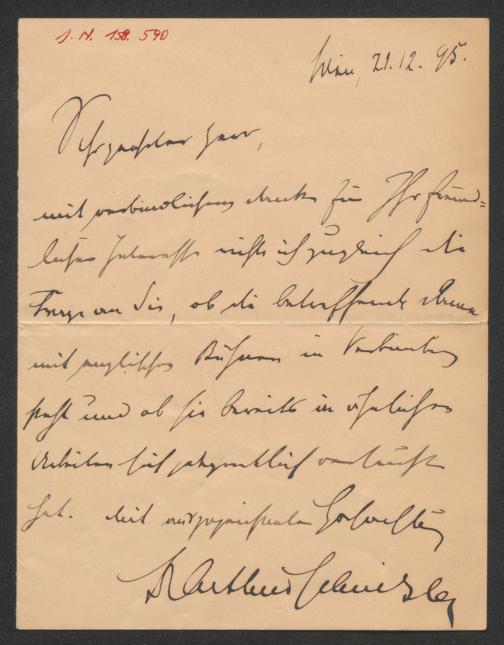 J. N. 158.590
Wien, 21.12.95.
Sehr geehrter Herr,
mit verbindlichem Danke für Ihr freund=
liches Interesse richte ich zugleich die
Frage an Sie, ob die betreffende Dame
mit englischen Bühnen in Verbindung
steht und ob sie bereits in ähnlichen
Arbeiten sich gelegentlich versucht
hat. Mit ausgezeichneter Hochachtung
Dr Arthur Schnitzler